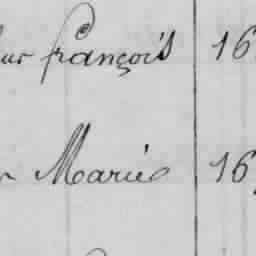 ur françois 16
r Marie 16